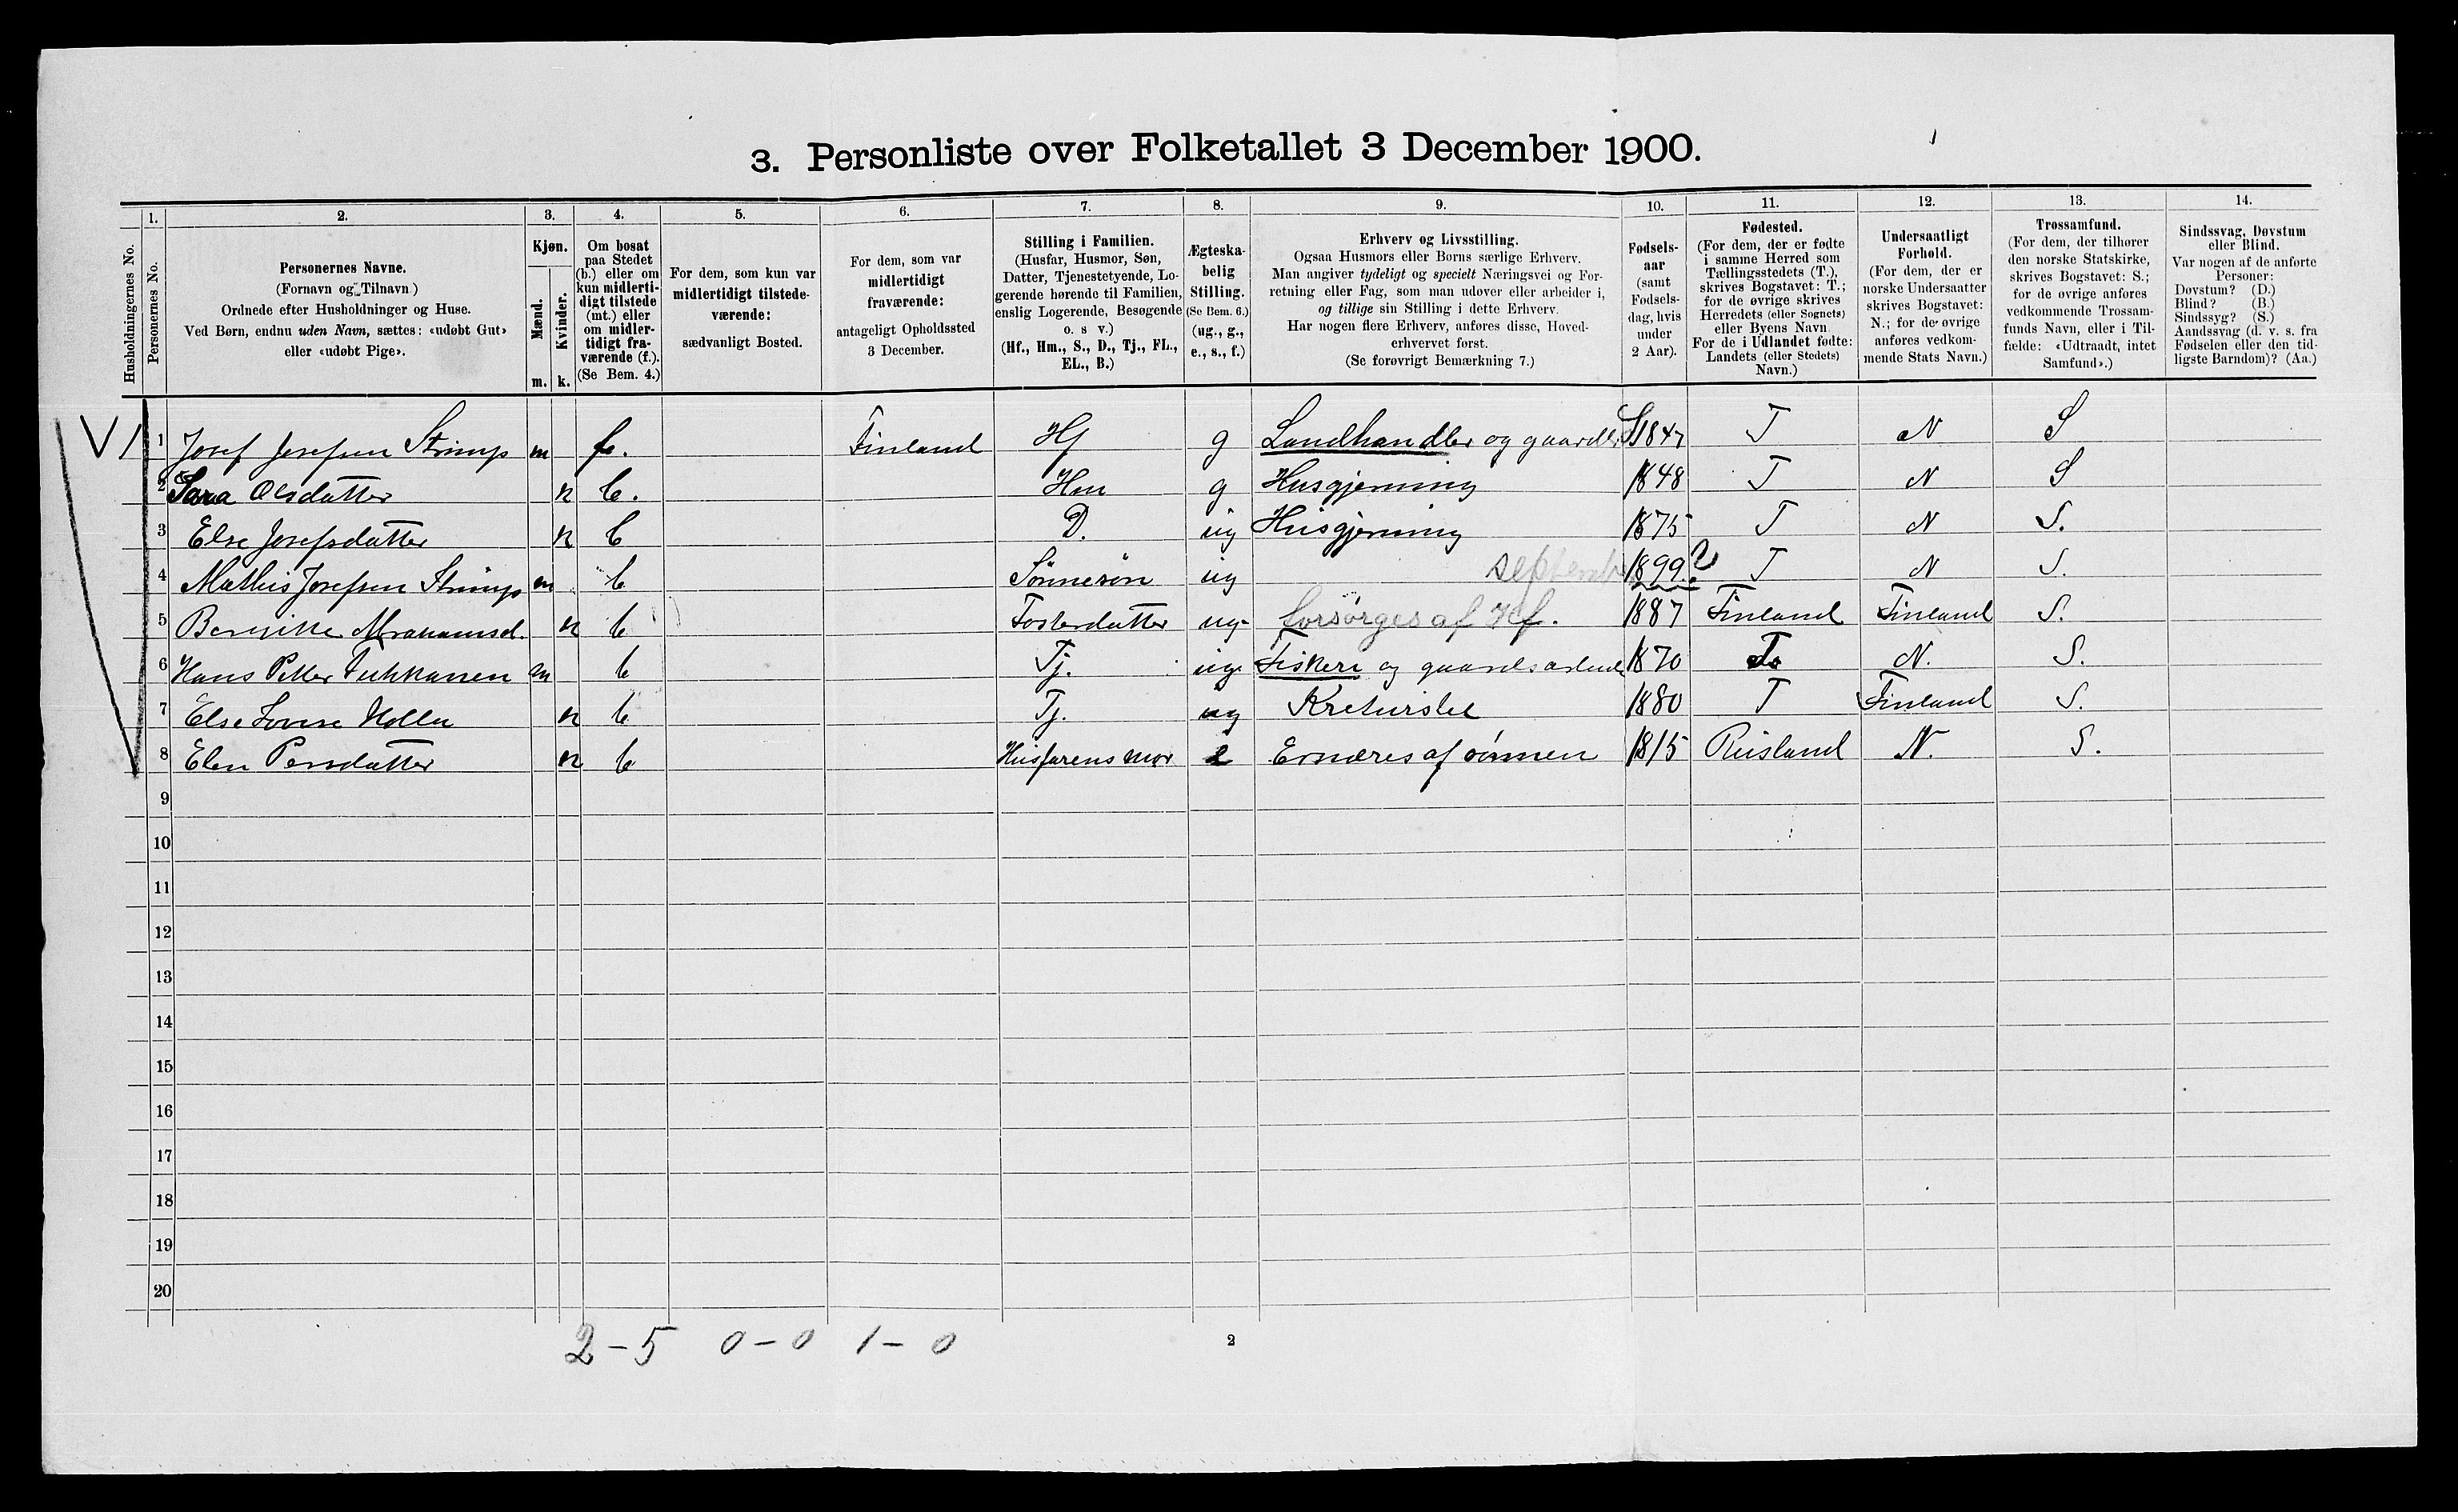 3. Personliste over Folketallet 3 December 1900.
1. 2. 3. 4. 5. 6. 7. 8. 9. 10. 11. 12. 13. 14.
Husholdningernes No.
Personernes No.
Personernes Navne.
(Fornavn og Tilnavn)
Ordnede efter Husholdninger og Huse.
Ved Børn, endnu uden Navn, sættes: «udøbt Gut»
eller «udøbt Pige».
Kjøn.
Mænd.
Kvinder.
m. k.
Om bosat
paa Stedet
(b.) eller om
kun midlerti-
digt tilstede
(mt.) eller
om midler-
tidigt fra-
værende (f.).
(Se Bem. 4.)
For dem, som kun var
midlertidigt tilstede-
værende:
sædvanligt Bosted.
For dem, som var
midlertidigt
fraværende:
antageligt Opholdssted
3 December.
Stilling i Familien.
(Husfar, Husmor, Søn,
Datter, Tjenestetyende, Lo-
gerende hørende til Familien,
enslig Logerende, Besøgende
o. s v.)
(Hf., Hm., S., D., Tj., FL.,
EL., B.)
Ægteska-
belig
Stilling.
(Se Bem. 6.)
(ug., g.,
e., s., f.)
Erhverv og Livsstilling.
Ogsaa Husmors eller Børns særlige Erhverv.
Man angiver tydeligt og specielt Næringsvei og For-
retning eller Fag, som man udøver eller arbeider i,
og tillige sin Stilling i dette Erhverv.
Har nogen flere Erhverv, anføres disse, Hoved-
erhvervet først.
(Se forøvrigt Bemærkning 7.)
Fødsels-
aar
(samt
Fødsels-
dag, hvis
under
2 Aar).
Fødested.
(For dem, der er fødte
i samme Herred som
Tællingsstedets (T.),
skrives Bogstavet: T.;
for de øvrige skrives
Herredets (eller Sognets)
eller Byens Navn
For de i Udlandet fødte:
Landets (eller Stedets)
Navn.)
Undersaatligt
Forhold.
(For dem, der er
norske Undersaatter
skrives Bogstavet:
N.; for de øvrige
anføres vedkom-
mende Stats Navn.)
Trossamfund.
(For dem, der tilhører
den norske Statskirke,
skrives Bogstavet: S.;
for de øvrige anføres
vedkommende Trossam-
funds Navn, eller i Til-
fælde: «Udtraadt, intet
Samfund».)
Sindssvag, Døvstum
eller Blind.
Var nogen af de anførte
Personer:
Døvstum? (D.)
Blind? (B.)
Sindssyg? (S.)
Aandssvag (d. v. s. fra
Fødselen eller den tid-
ligste Barndom)? (Aa.)
1 Josef Josefsen m f. Finland Hf g Landhandler og 1847 T N S
2 Sara Olsdatter k b. Hm g Husgjerning 1848 T N S
3 Else Josefsdatter k b D. ug Husgjerning 1875 T N S.
4 Mathis Josefsen m b Sønnesøn ug september 1899 ? T N S.
5 k b Fosterdatter ug. forsørges af Hf. 1887 Finland Finland S.
6 Hans Petter m b Tj. ug. Fiskeri og gaardsarbeide 1870 T. N. S.
7 Else Lovise k b Tj. ug Kreturstel 1880 T Finland S.
8 Elen Persdatter k b Husfarens mor e Ernæres af sønnen 1815 Rusland N. S.
9
10
11
12
13
14
15
16
17
18
19
20
2 - 5 0 - 0 1 - 0
2